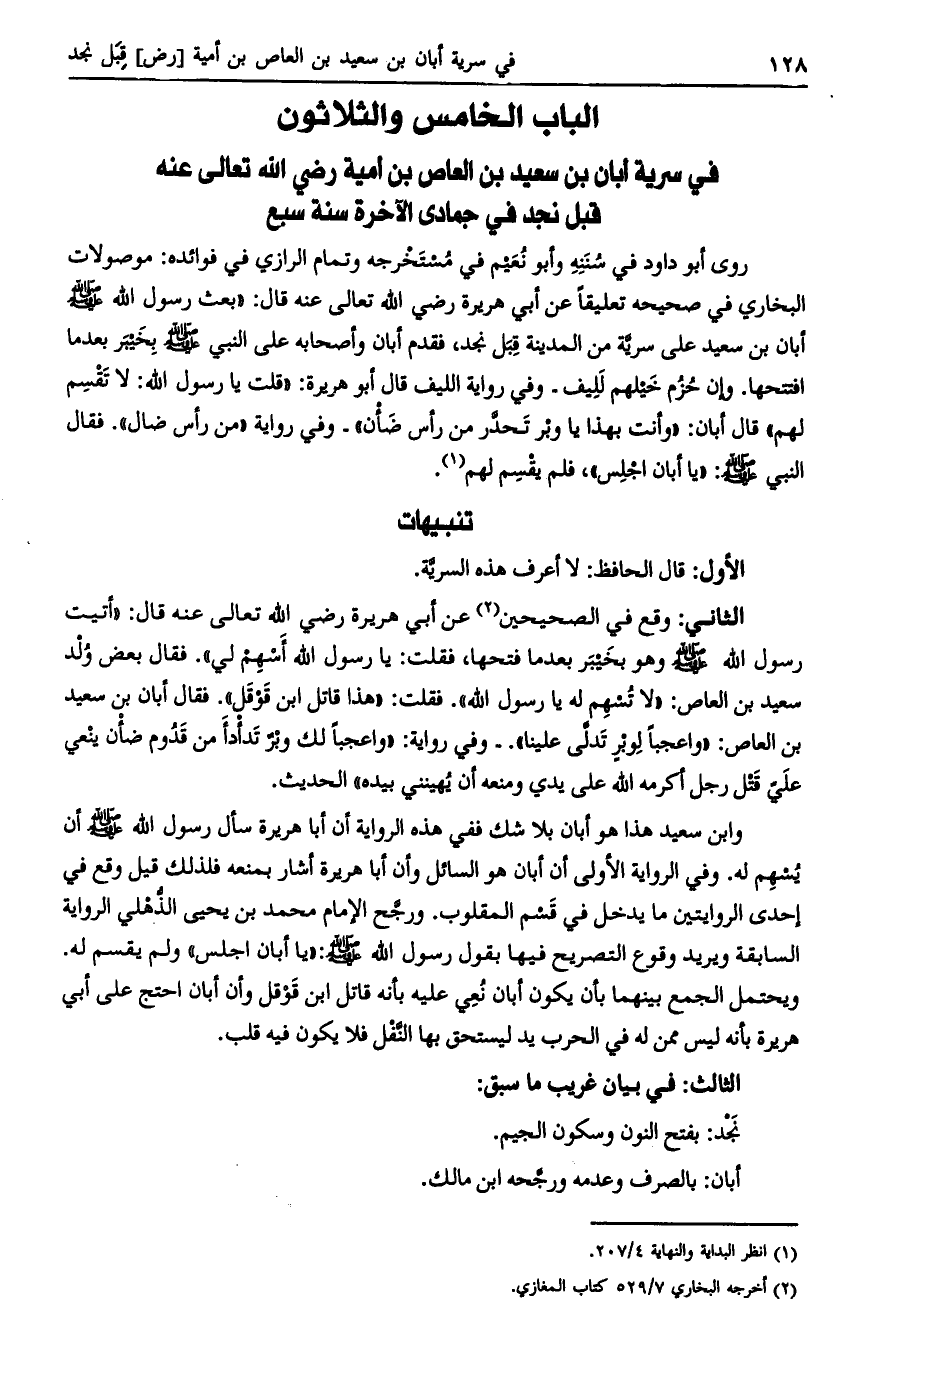 ١٢٨ في سرية أبان بن سعيد بن العاص بن أمية [رض] قِبَل نجد
الباب الخامس والثلاثون
في سرية أبان بن سعيد بن العاص بن أمية رضي الله تعالى عنه
قبل نجد في جمادى الآخرة سنة سبع
روى أبو داود في سُنَنِهِ وأبو نُعَيْم في مُسْتَخْرجه وتمام الرازي في فوائده: موصولات
البخاري في صحيحه تعليقاً عن أبي هريرة رضي الله تعالى عنه قال: «بعث رسول الله ﷺ
أبان بن سعيد على سريَّة من المدينة قِبَل نجد، فقدم أبان وأصحابه على النبي ﷺ بِخَيْبَر بعدما
افتتحها. وإن حُزُم خَيْلهم لَلِيف ـ وفي رواية الليف قال أبو هريرة: «قلت يا رسول الله: لا تَقْسِم
لهم» قال أبان: «وأنت بهذا يا وبْر تَحدَّر من رأس ضَأْن» ـ وفي رواية «من رأس ضال». فقال
النبي ﷺ: «يا أبان اجْلِس»، فلم يقْسِم لهم(١).
تنبيهات
الأول: قال الحافظ: لا أعرف هذه السريَّة.
الثاني: وقع في الصحيحين(٢) عن أبي هريرة رضي الله تعالى عنه قال: «أتيت
رسول الله ﷺ وهو بخَيْبَر بعدما فتحها، فقلت: يا رسول الله أَسْهِمْ لي». فقال بعض وُلْد
سعيد بن العاص: «لا تُسْهِم له يا رسول الله». فقلت: «هذا قاتل ابن قَوْقَل». فقال أبان بن سعيد
بن العاص: «واعجباً لِوبْرٍ تَدلَّى علينا». ـ وفي رواية: «واعجباً لك وبْرٌ تَدأْدأَ من قَدُوم ضأْن ينْعي
عليّ قَتْل رجل أكرمه الله على يدي ومنعه أن يُهينني بيده» الحديث.
وابن سعيد هذا هو أبان بلا شك ففي هذه الرواية أن أبا هريرة سأل رسول الله ﷺ أن
يُسْهِم له. وفي الرواية الأولى أن أبان هو السائل وأن أبا هريرة أشار بمنعه فلذلك قيل وقع في
إحدى الروايتين ما يدخل في قَسْم المقلوب. ورجَّح الإمام محمد بن يحيى الذُّهْلي الرواية
السابقة ويريد وقوع التصريح فيها بقول رسول الله ﷺ:«يا أبان اجلس» ولم يقسم له.
ويحتمل الجمع بينهما بأن يكون أبان نُعِي عليه بأنه قاتل ابن قَوْقل وأن أبان احتج على أبي
هريرة بأنه ليس ممن له في الحرب يد ليستحق بها النَّفْل فلا يكون فيه قلب.
الثالث: في بيان غريب ما سبق:
نَجْد: بفتح النون وسكون الجيم.
أبان: بالصرف وعدمه ورجَّحه ابن مالك.
(١) انظر البداية والنهاية ٢٠٧/٤.
(٢) أخرجه البخاري ٥٢٩/٧ كتاب المغازي.